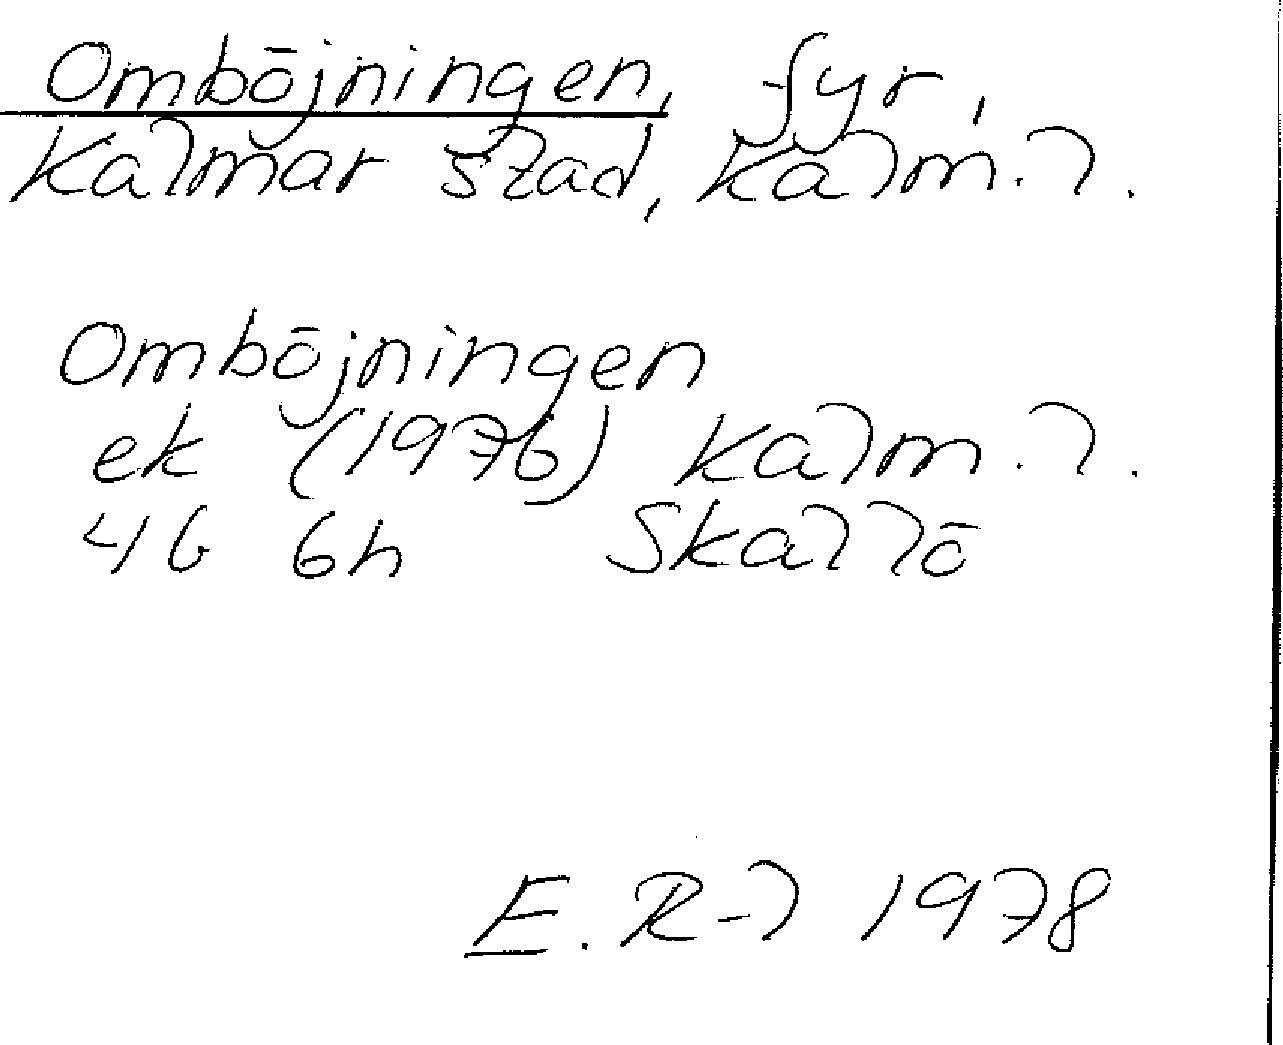 Omböjningen, fyr,
Kalmar stad, Kalm. l.
Omböjningen
ek (1976) Kalm. l.
4G 6h Skallö
E. R-l 1978